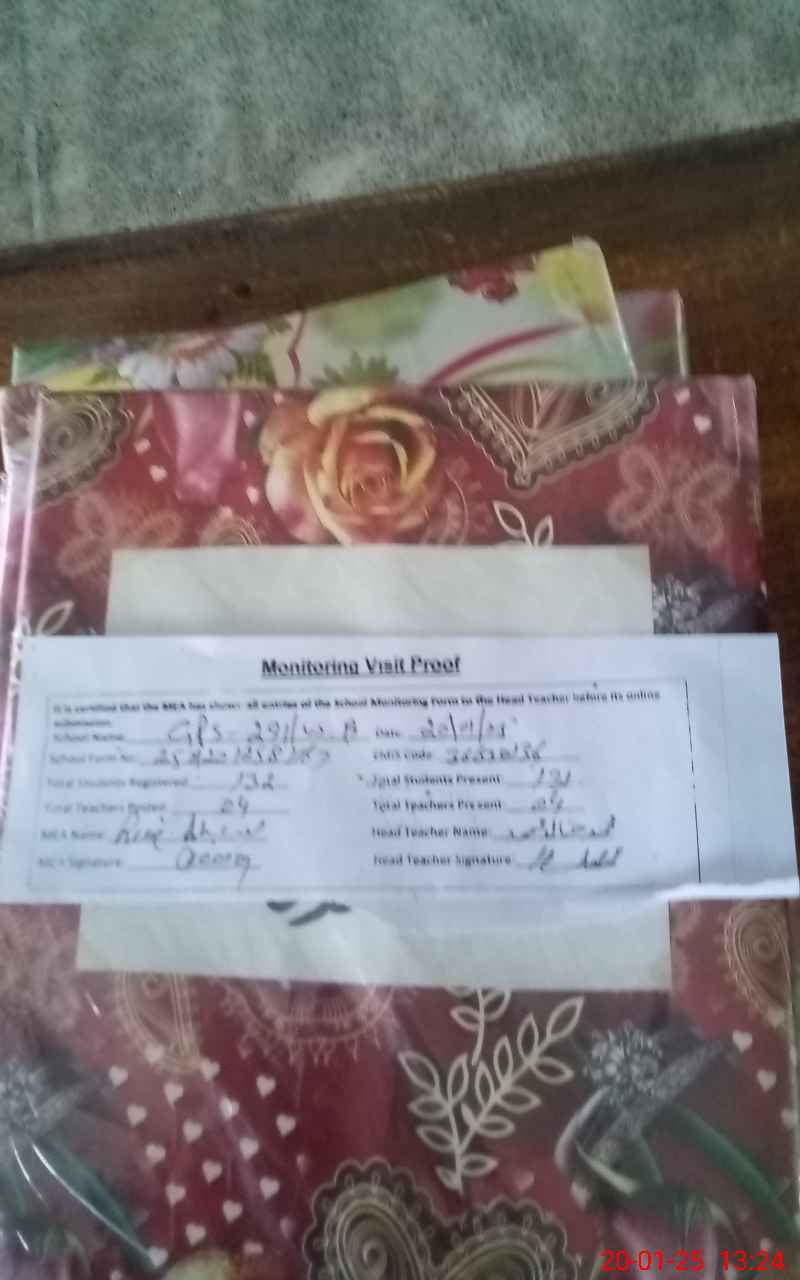 Monitoring Visit Proof
It is certified that the MEA has shown all entries of the School Monitoring Form to the Head Teacher before its online
submission.
School Name: GPS - 291/W.B Date: 20/01/25
School Form No: EMIS Code:
Total Students Registered: 132 Total Students Present: 131
Total Teachers Posted: 04 Total Teachers Present: 04
MEA Name: Head Teacher Name:
MEA Signature: Head Teacher Signature:
20-01-25 13:24